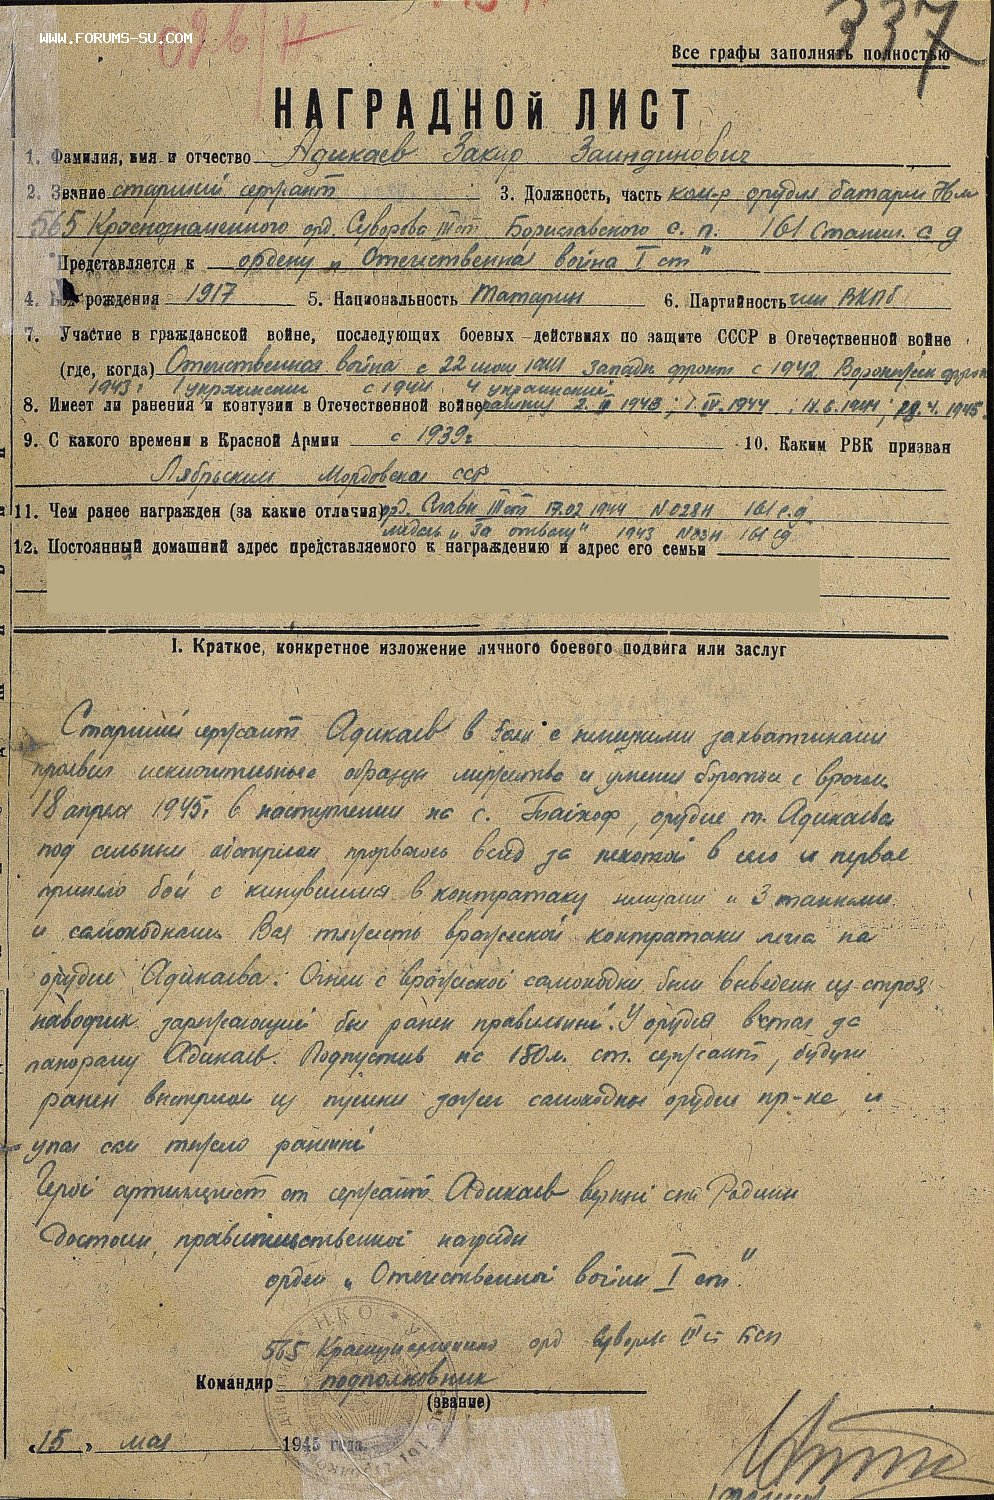 WWW.FORUMS-SU.COM
337
Все графы заполнять полностью
НАГРАДНОЙ ЛИСТ
1. Фамилия, имя и отчество Адикаев Закир Заиндинович
2. Звание старший сержант 3. Должность, часть ком-р орудия батареи
565 Краснознаменного орд. Суворова III ст Бориславского с. п. 161 Станисл. с д
Представляется к ордену „Отечественная война I ст"
4. Год рождения 1917 5. Национальность Татарин 6. Партийность член ВКПб
7. Участие в гражданской войне, последующих боевых действиях по защите СССР в Отечественной войне
(где, когда) Отечественная война с 22 июня 1941 Западн фронт с 1942 Воронежск фронт
1943 г 1 украинский с 1944 4 украинский
8. Имеет ли ранения и контузии в Отечественной войне ранения 1943; 1944, 1944; 1945.
9. С какого времени в Красной Армии с 1939 г 10. Каким РВК призван
Лябрьским Мордовская ССР
11. Чем ранее награжден (за какие отличия) орд. Славы III ст 17.02 1944 N 028 н 161 с.д
медаль „За отвагу" 1943 161 сд
12. Постоянный домашний адрес представляемого к награждению и адрес его семьи
I. Краткое, конкретное изложение личного боевого подвига или заслуг
Старший сержант Адикаев в боях с немецкими захватчиками
проявил исключительные образцы мужества и умения бороться с врагом.
18 апреля 1945 г в наступлении на с. орудие т. Адикаева
под сильным обстрелом прорвалось вслед за пехотой в село и первое
приняло бой с кинувшимися в контратаку немцами и 3 танками
и самоходками. Вся тяжесть вражеской контратаки легла на
орудие Адикаева. Огнем с вражеской самоходки были выведен из строя
наводчик заряжающий был ранен правильный. У орудия встал за
панораму Адикаев. Подпустив на 150 м. ст. сержант, будучи
ранен выстрелом из пушки зажег самоходное орудие пр-ка и
упал сам тяжело раненый
Герой артиллерист ст сержант Адикаев верный сын Родины
достоин правительственной награды
орден „Отечественной войны I ст".
565 Краснознаменного орд Суворова III ст Бсп
Командир подполковник
(звание)
„15„ мая 1945 года.